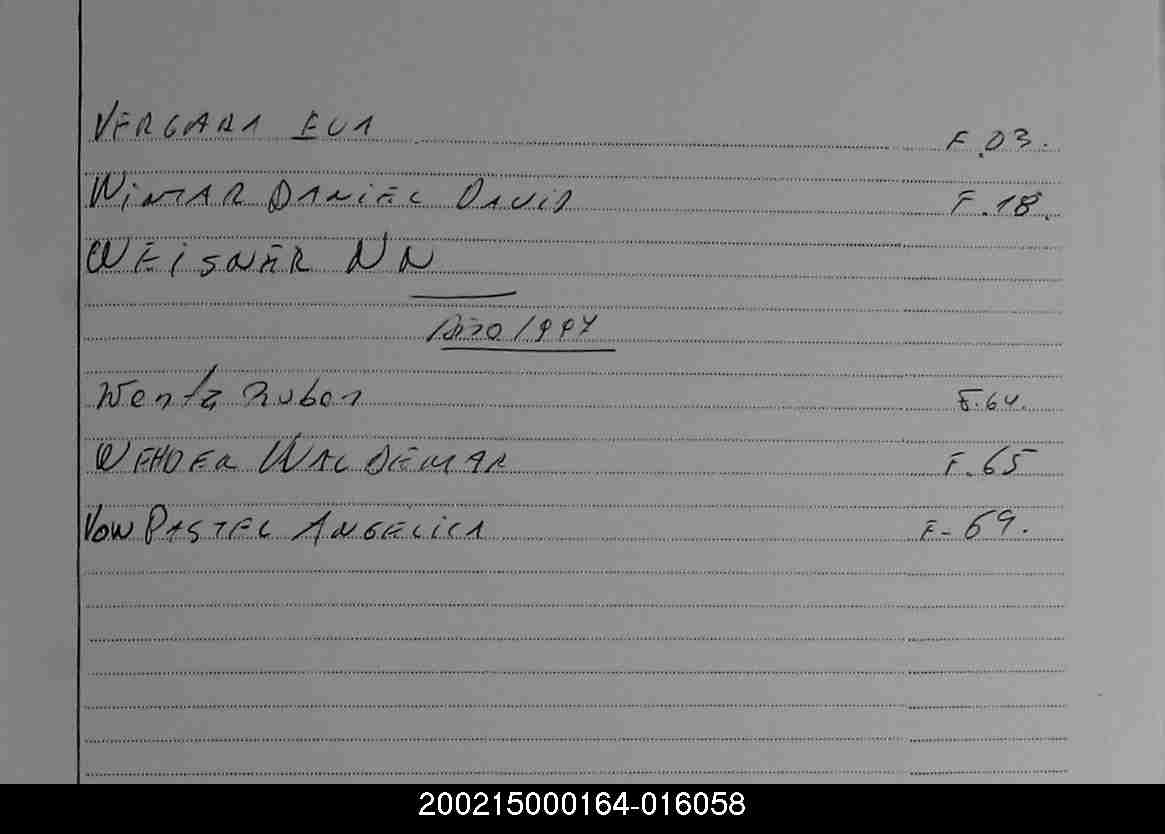 VERGARA EVA F.03.
WINTAR DANIEL DAVID F.18.
WEISNER NN
Año 1997
Wentz Ruben F.64.
WEHDER WALDEMAR F.65
VON PASTEL ANGELICA F-69.
200215000164-016058